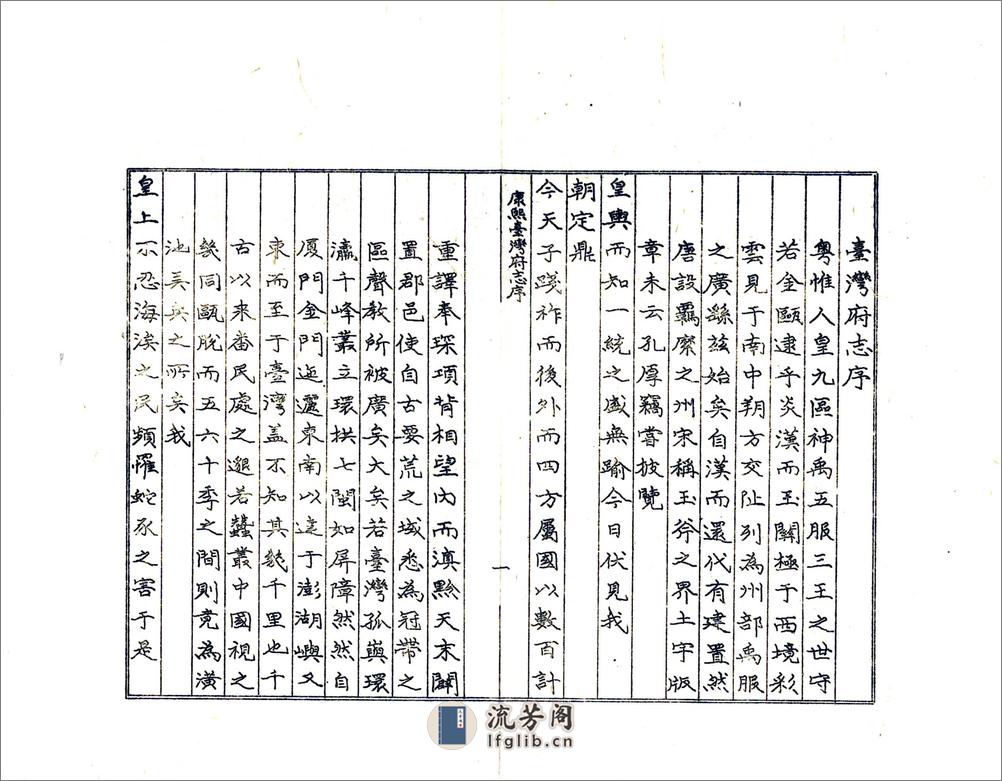 臺灣府志序
粵惟人皇九區神禹五服三王之世守
若金甌逮乎炎漢而玉關極于西境彩
雲見于南中朔方交阯列為州部禹服
之廣繇茲始矣自漢而還代有建置然
唐設羈縻之州宋稱玉斧之界土宇版
章未云孔厚竊嘗披覽
皇輿而知一統之盛無踰今日伏見我
朝定鼎
今天子踐祚而後外而四方屬國以數百計
康熙臺灣府志序
一
重譯奉琛項背相望內而滇黔天末闢
置郡邑使自古要荒之域悉為冠帶之
區聲教所被廣矣大矣若臺灣孤嶼環
瀛千峰叢立環拱七閩如屏障然然自
厦門金門迤邐東南以達于澎湖嶼又
東而至于臺灣盖不知其幾千里也千
古以來番民處之邈若蠶叢中國視之
幾同甌脫而五六十年之間則竟為潢
池弄兵之所矣我
皇上不忍海涘之民頻罹蛇豕之害于是
流芳阁
lfglib.cn